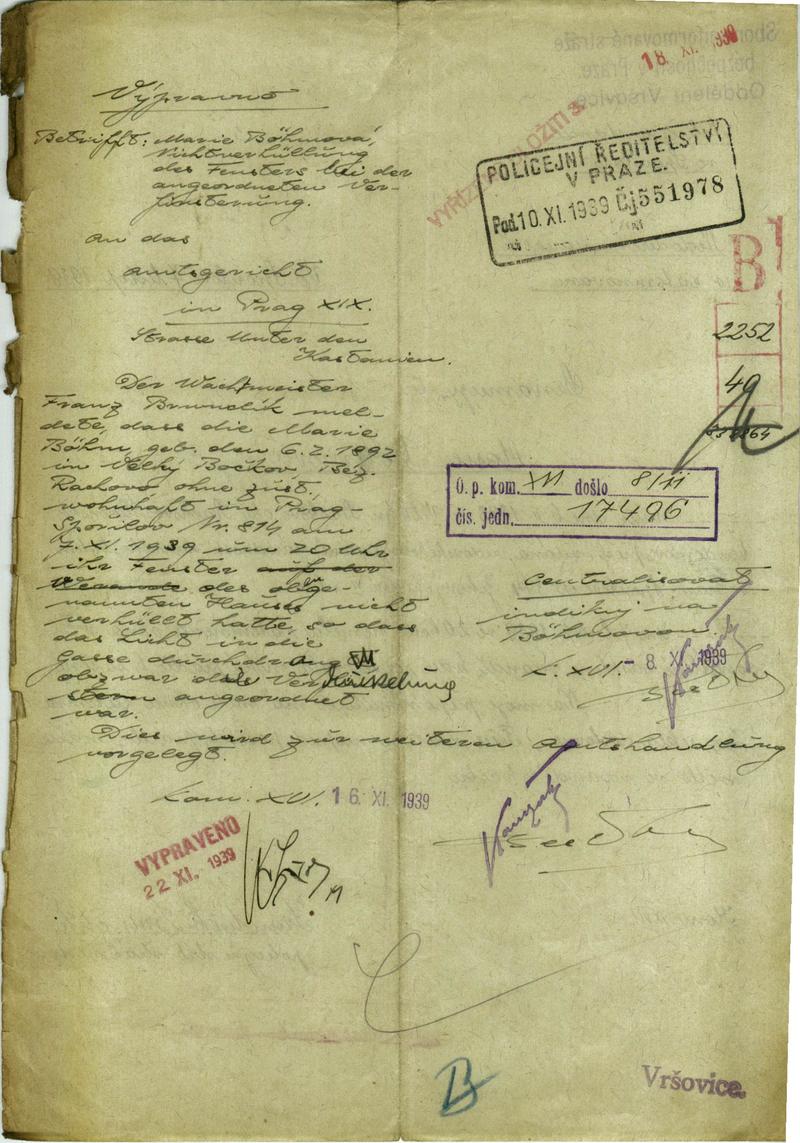 Výpravno
Betrifft: Marie Böhmová,
Nichtverhüllung
des Fensters bei der
angeordneten Ver-
finsterung.
An das
Amtsgericht
in Prag XIX.
Strasse Unter den
Kastanien.
Der Wachtmeister
Franz Bruncлík mel-
dete, dass die Marie
Böhm, geb. den 6.2.1892
in Velký Bočkov Bez.
Rachovo ohne zust.,
wohnhaft in Prag-
Spořilov Nr. 814 am
7. XI. 1939 um 20 Uhr
ihr Fenster auf der
Veranda des obge-
nannten Hauses nicht
verhüllt hatte, so dass
das Licht in die
Gasse durchdrang
obzwar die Verdunkelung
angeordnet
war.
Dies wird zur weiteren Amtshandlung
vorgelegt.
Kom. XVI. 16. XI. 1939
VYPRAVENO
22 XI. 1939
18. XI. 1939
POLICEJNÍ ŘEDITELSTVÍ
V PRAZE.
Pod. 10. XI. 1939 Čj 551978
B
2252
49
O. p. kom. XVI došlo 8/11
čís. jedn. 17496
Centralisovat
indiky na
Böhmovou
K. XVI. - 8. XI. 1939
B
Vršovice.